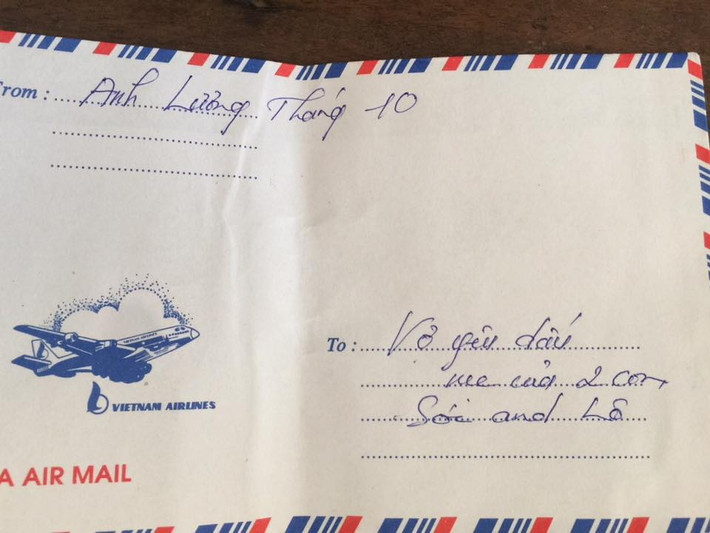 From : Anh Lương Tháng 10
VIETNAM AIRLINES
To : Vợ yêu dấu
mẹ của 2 con
Sóc and Lô
A AIR MAIL